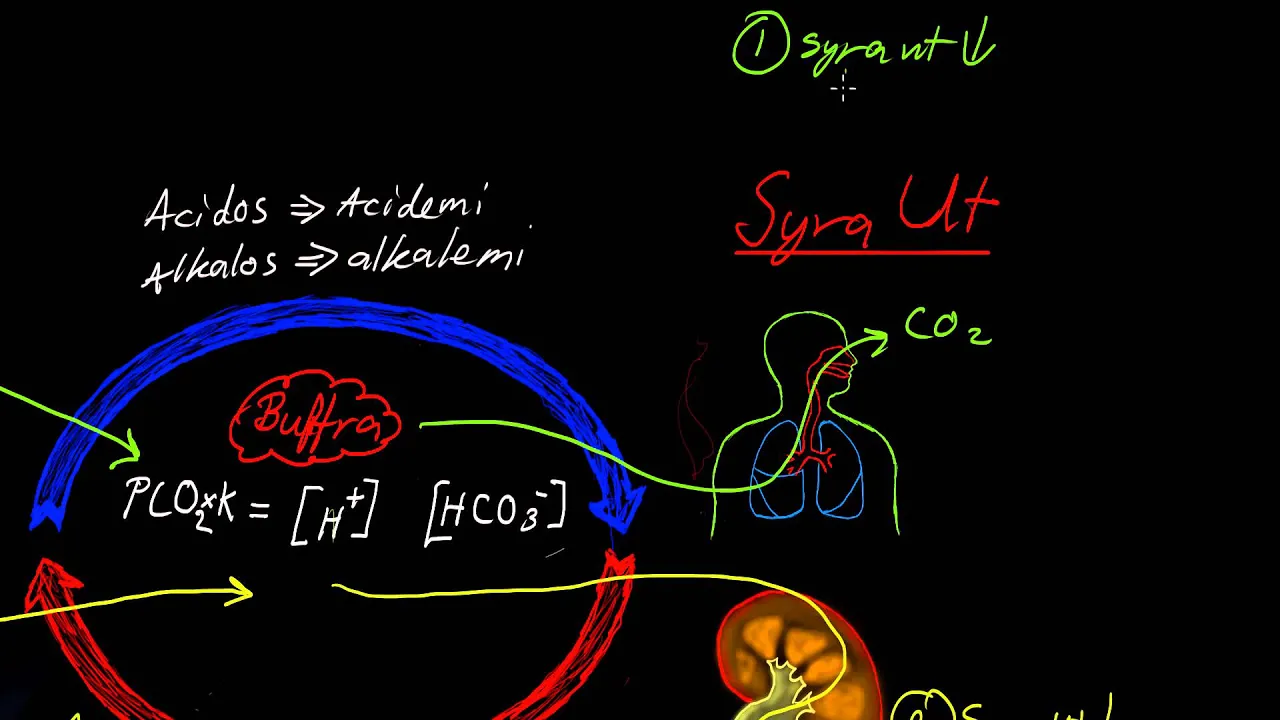 ① syra ut ↓
Syra Ut
Acidos ⇒ Acidemi
Alkalos ⇒ alkalemi
CO₂
Buffra
PCO₂×K = [H⁺] [HCO₃⁻]